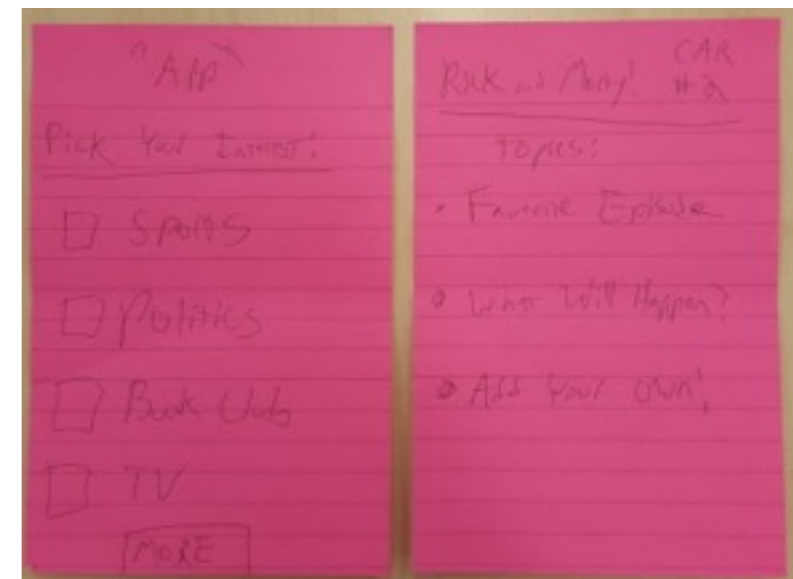 "App"
Pick Your Interest!
Sports
Politics
Book Club
TV
MORE
Rick and Morty! CAR
#2
Topics:
• Favorite Episode
• What Will Happen?
• Add Your Own!